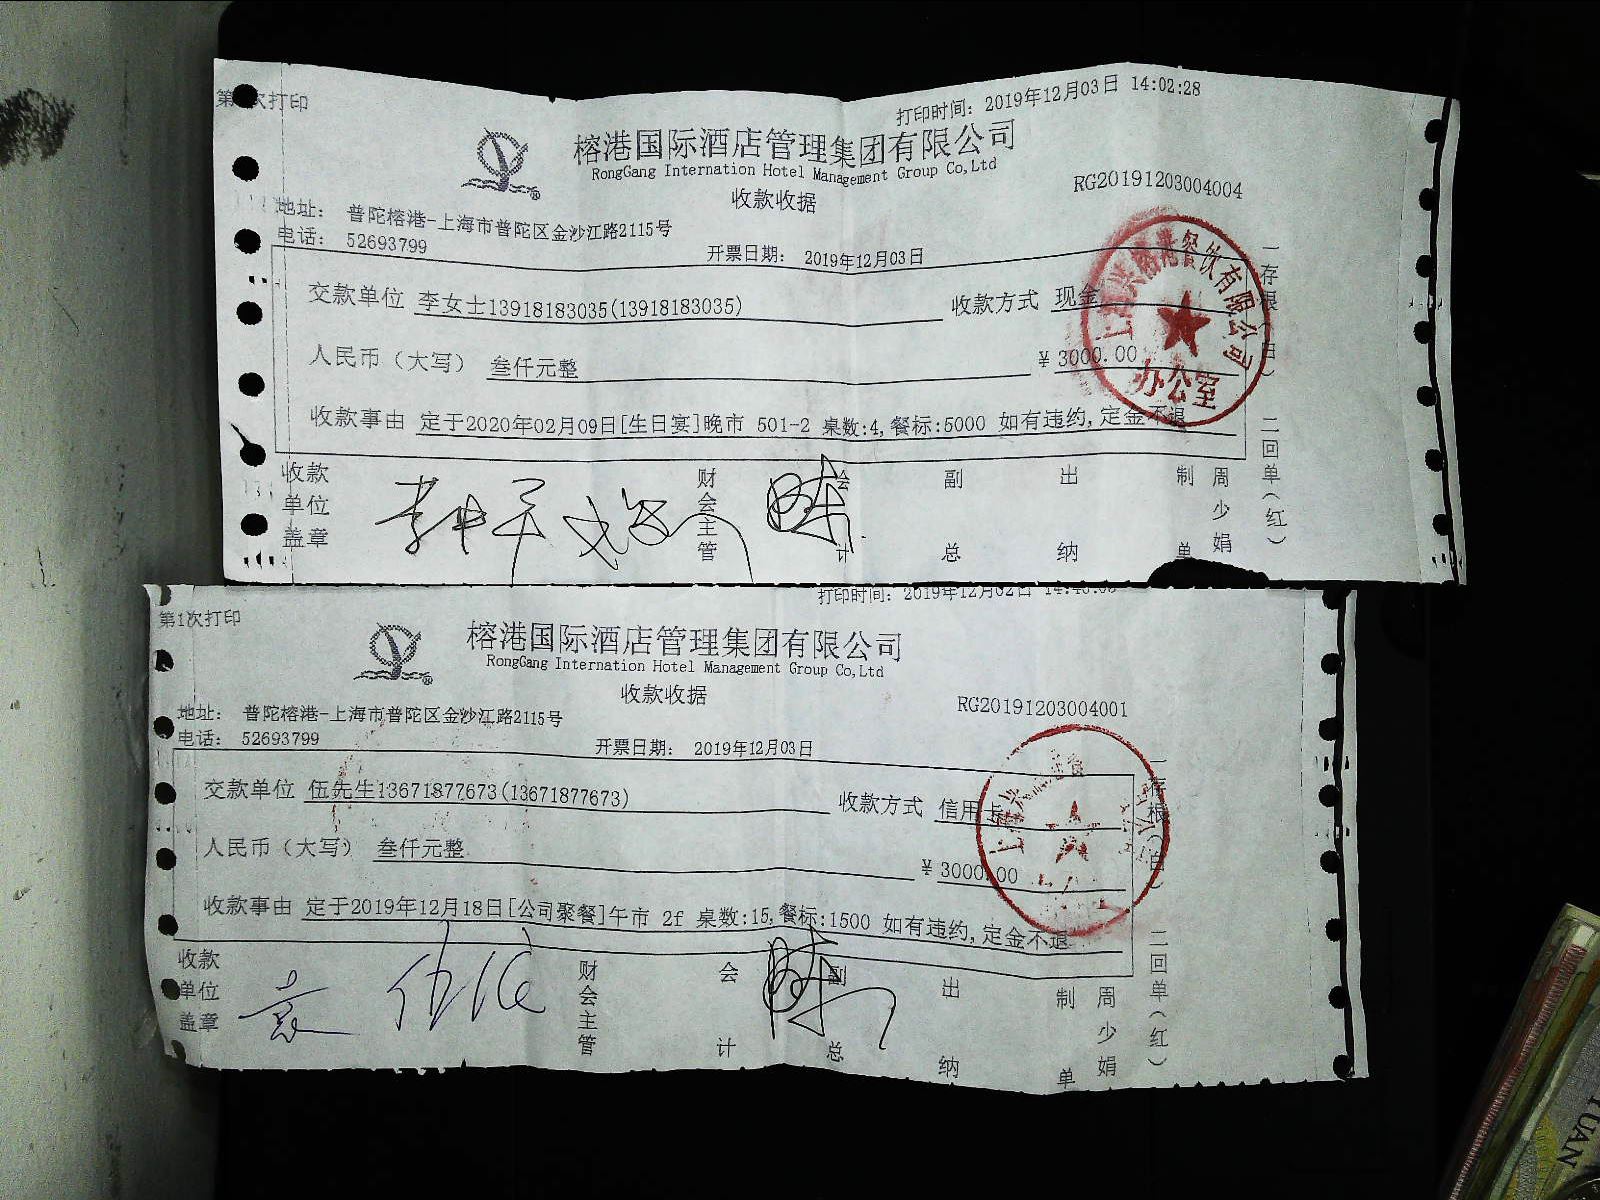 打印时间: 2019年12月03日 14:02:28
榕港国际酒店管理集团有限公司
RongGang Internation Hotel Management Group Co,Ltd
收款收据
RG20191203004004
地址: 普陀榕港-上海市普陀区金沙江路2115号
电话: 52693799
开票日期: 2019年12月03日
交款单位 李女士13918183035(13918183035) 收款方式 现金
人民币（大写） 叁仟元整 ¥ 3000.00
收款事由 定于2020年02月09日[生日宴]晚市 501-2 桌数:4,餐标:5000 如有违约,定金不退
一存根（白） 二回单（红）
餐饮有限公司
办公室
收款单位盖章 财会主管 会计 副总 出纳 制单 周少娟
第1次打印
打印时间: 2019年12月02日
榕港国际酒店管理集团有限公司
RongGang Internation Hotel Management Group Co,Ltd
收款收据
RG20191203004001
地址: 普陀榕港-上海市普陀区金沙江路2115号
电话: 52693799
开票日期: 2019年12月03日
交款单位 伍先生13671877673(13671877673) 收款方式 信用卡
人民币（大写） 叁仟元整 ¥ 3000.00
收款事由 定于2019年12月18日[公司聚餐]午市 2f 桌数:15,餐标:1500 如有违约,定金不退
一存根（白） 二回单（红）
收款单位盖章 财会主管 会计 副总 出纳 制单 周少娟
YUAN